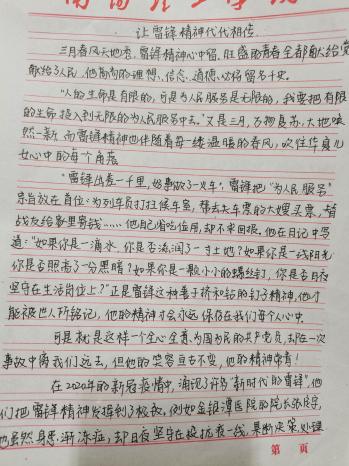 让雷锋精神代代相传
三月春风天地香，雷锋精神心中留。旺盛的青春全都献给党
献给了人民，他高尚的理想、信念、道德、必将留名千史。
"人的生命是有限的，可是为人民服务是无限的，我要把有限
的生命投入到无限的为人民服务中去。"又是三月，万物复苏，大地焕
然一新，而雷锋精神也伴随着每一缕温暖的春风，吹住华夏儿
女心中的每个角落
"雷锋出差一千里，好事做了一火车"，雷锋把"为人民服务"
常当放在首位：为列车员打扫候车室，帮丢失车票的大嫂买票，替
战友给家里寄钱……他自己省吃俭用，却不求回报。他在日记中写
道："如果你是一滴水，你是否滋润了一寸土地？如果你是一线阳光
你是否照亮了一分黑暗？如果你是一颗小小的螺丝钉，你是否日夜
坚守在生活岗位上？"正是雷锋这种善于挤和钻的钉子精神，他才
能被世人所铭记，他的精神才会永远保存在我们每个人心中.
可是就是这样一个全心全意、为国为民的共产党员，却在一次
事故中离我们远去，但他的笑容亘古不变，他的精神常青！
在2020年的新冠疫情中，涌现了许多"新时代的雷锋"，他
们把雷锋精神发挥到了极致，例如金银潭医院的院长张定宇，
他虽然身患渐冻症，却日夜坚守在疫抗疫一线，果断决策，处理
第 页